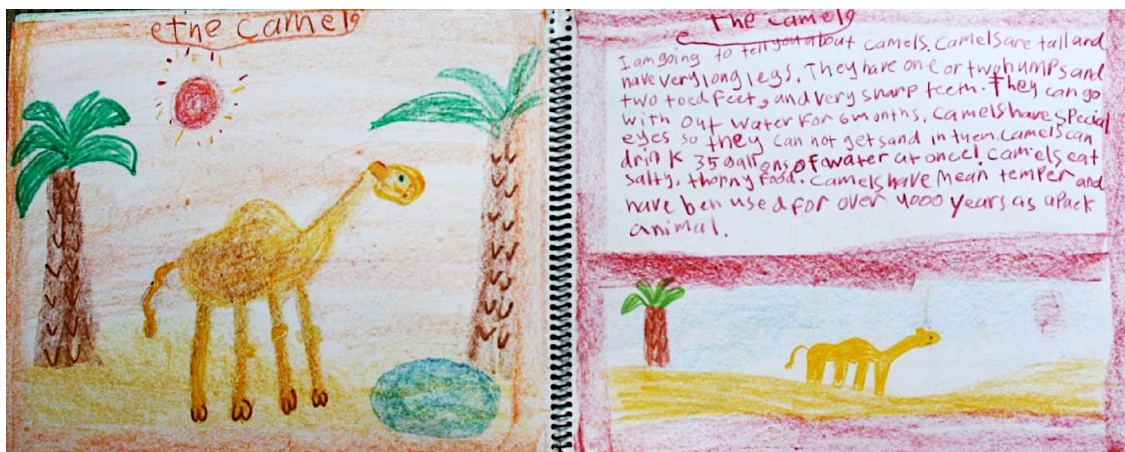 the camel
the camel
I am going to tell you about camels. Camels are tall and
have very long legs. They have one or two humps and
two toed feet, and very sharp teeth. They can go
with out water for 6 months. Camels have special
eyes so they can not get sand in them. Camels can
drink 35 gallons of water at once!. Camels eat
salty, thorny food. Camels have mean temper and
have ben used for over 4000 years as a pack
animal.